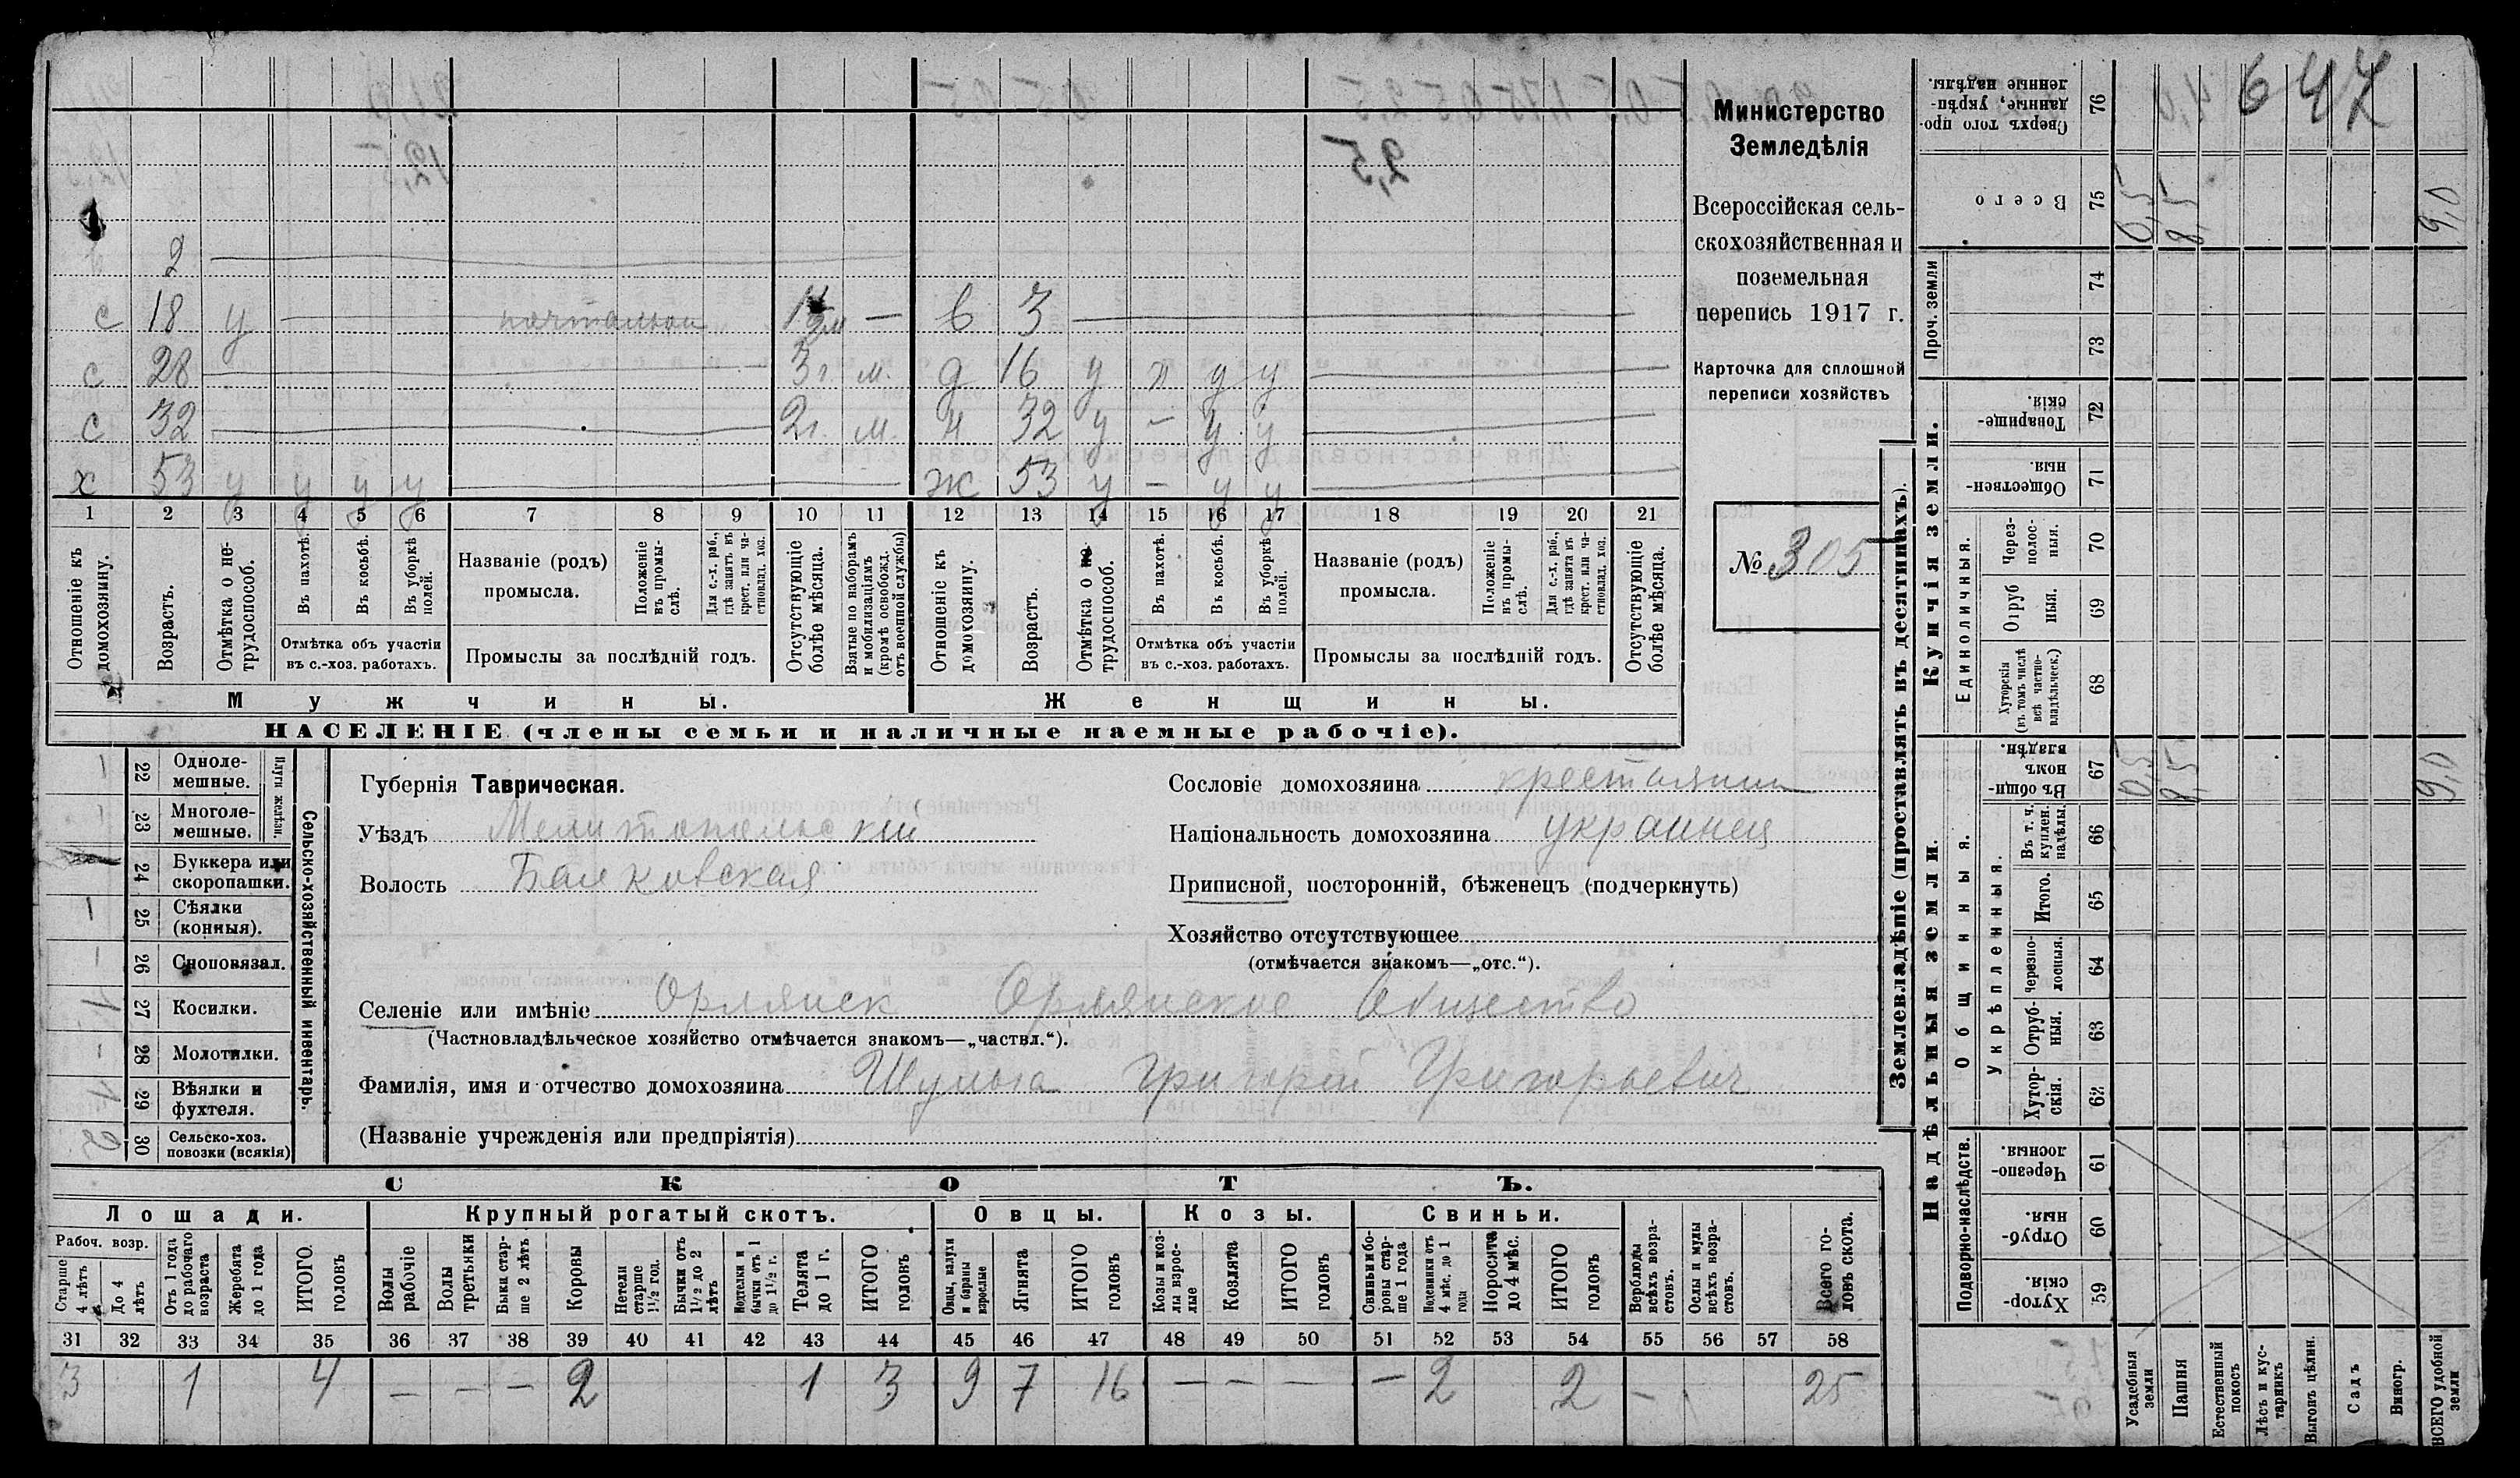 647
Министерство
Земледѣлія
Всероссійская сель-
скохозяйственная и
поземельная
перепись 1917 г.
Карточка для сплошной
переписи хозяйствъ
№ 305
2
с 18 у — почтальон — в 3 —
с 28 — 3г. м. д 16 у п у у —
с 32 — 2г. м. н 32 у – у у —
х 53 у у у у — ж 53 у – у у —
1 2 3 4 5 6 7 8 9 10 11 12 13 14 15 16 17 18 19 20 21
Отношеніе къ домохозяину.
Возрастъ.
Отмѣтка о не-трудоспособ.
Въ пахотѣ.
Въ косьбѣ.
Въ уборкѣ полей.
Отмѣтка объ участіи въ с.-хоз. работахъ.
Названіе (родъ) промысла.
Положеніе въ промы-слѣ.
Для с.-х. раб., гдѣ занятъ въ крест. или ча-стновлад. хоз.
Промыслы за послѣдній годъ.
Отсутствующіе болѣе мѣсяца.
Взятые по наборамъ и мобилизаціямъ (кромѣ освобожд. отъ военной службы)
Отношеніе къ домохозяину.
Возрастъ.
Отмѣтка о не-трудоспособ.
Въ пахотѣ.
Въ косьбѣ.
Въ уборкѣ полей.
Отмѣтка объ участіи въ с.-хоз. работахъ.
Названіе (родъ) промысла.
Положеніе въ промы-слѣ.
Для с.-х. раб., гдѣ занята въ крест. или ча-стновлад. хоз.
Промыслы за послѣдній годъ.
Отсутствующіе болѣе мѣсяца.
Мужчины. Женщины.
НАСЕЛЕНІЕ (члены семьи и наличные наемные рабочіе).
Сельско-хозяйственный инвентарь.
Плуги желѣзн.
– 22 Одноле-мешные.
– 23 Многоле-мешные.
24 Буккера или скоропашки.
– 25 Сѣялки (конныя).
– 26 Сноповязал.
1 27 Косилки.
– 28 Молотилки.
1 29 Вѣялки и фухтеля.
30 Сельско-хоз. повозки (всякія)
Губернія Таврическая.
Уѣздъ Мелитопольскій
Волость Балковская
Сословіе домохозяина крестьянин
Національность домохозяина украинец
Приписной, посторонній, бѣженецъ (подчеркнуть)
Хозяйство отсутствующее
(отмѣчается знакомъ—„отс.“).
Селеніе или имѣніе Орлянск Орлянское Общество
(Частновладѣльческое хозяйство отмѣчается знакомъ—„частвл.“).
Фамилія, имя и отчество домохозяина Шулька Григорій Григорьевич
(Названіе учрежденія или предпріятія)
СКОТЪ.
Лошади. Крупный рогатый скотъ. Овцы. Козы. Свиньи.
Рабоч. возр.
Старше 4 лѣтъ
До 4 лѣтъ
Отъ 1 года до рабочаго возраста
Жеребята до 1 года
ИТОГО головъ
Волы рабочіе
Волы третьяки
Быки стар-ше 2 лѣтъ
Коровы
Нетели старше 1½ год.
Бычки отъ 1½ до 2 лѣтъ
Нотелки и бычки отъ 1 до 1½ г.
Телята до 1 г.
ИТОГО головъ
Овцы, валухи и бараны взрослые
Ягнята
ИТОГО головъ
Козы и коз-лы взрос-лые
Козлята
ИТОГО головъ
Свиньи и бо-ровы стар-ше 1 года
Подсвинки отъ 4 мѣс. до 1 года
Поросята до 4 мѣс.
ИТОГО головъ
Верблюды всѣхъ возра-стовъ.
Ослы и мулы всѣхъ возра-стовъ.
Всего го-ловъ скота.
31 32 33 34 35 36 37 38 39 40 41 42 43 44 45 46 47 48 49 50 51 52 53 54 55 56 57 58
3 1 4 – – – 2 1 3 9 7 16 – – – – 2 2 – 25
Землевладѣніе (проставлять въ десятинахъ).
Купчія земли.
Надѣльныя земли.
Сверхъ того про-данные, укрѣп-ленные надѣлы. 76
Всего 75 0,5 8,5 9,0
Проч. земли 74 73
Товарище-скія. 72
Обществен-ныя. 71
Единоличныя.
Через-полос-ныя. 70
Отруб ныя. 69
Хуторскія (въ томъ числѣ всѣ частно-владѣльческ.) 68
Общинныя.
Въ общи-номъ владѣн. 67 0,5 8,5 9,0
Укрѣпленныя.
Въ т. ч. куплен. надѣлы. 66
Итого. 65
Черезпо-лосныя. 64
Отруб-ныя. 63
Хутор-скія. 62
Подворно-наслѣдств.
Черезпо-лосныя. 61
Отруб-ныя. 60
Хутор-скія. 59
Усадебныя земли
Пашня
Естественный покосъ
Лѣсъ и кус-тарникъ
Выгонъ цѣлин.
Садъ
Виногр.
ВСЕГО удобной земли